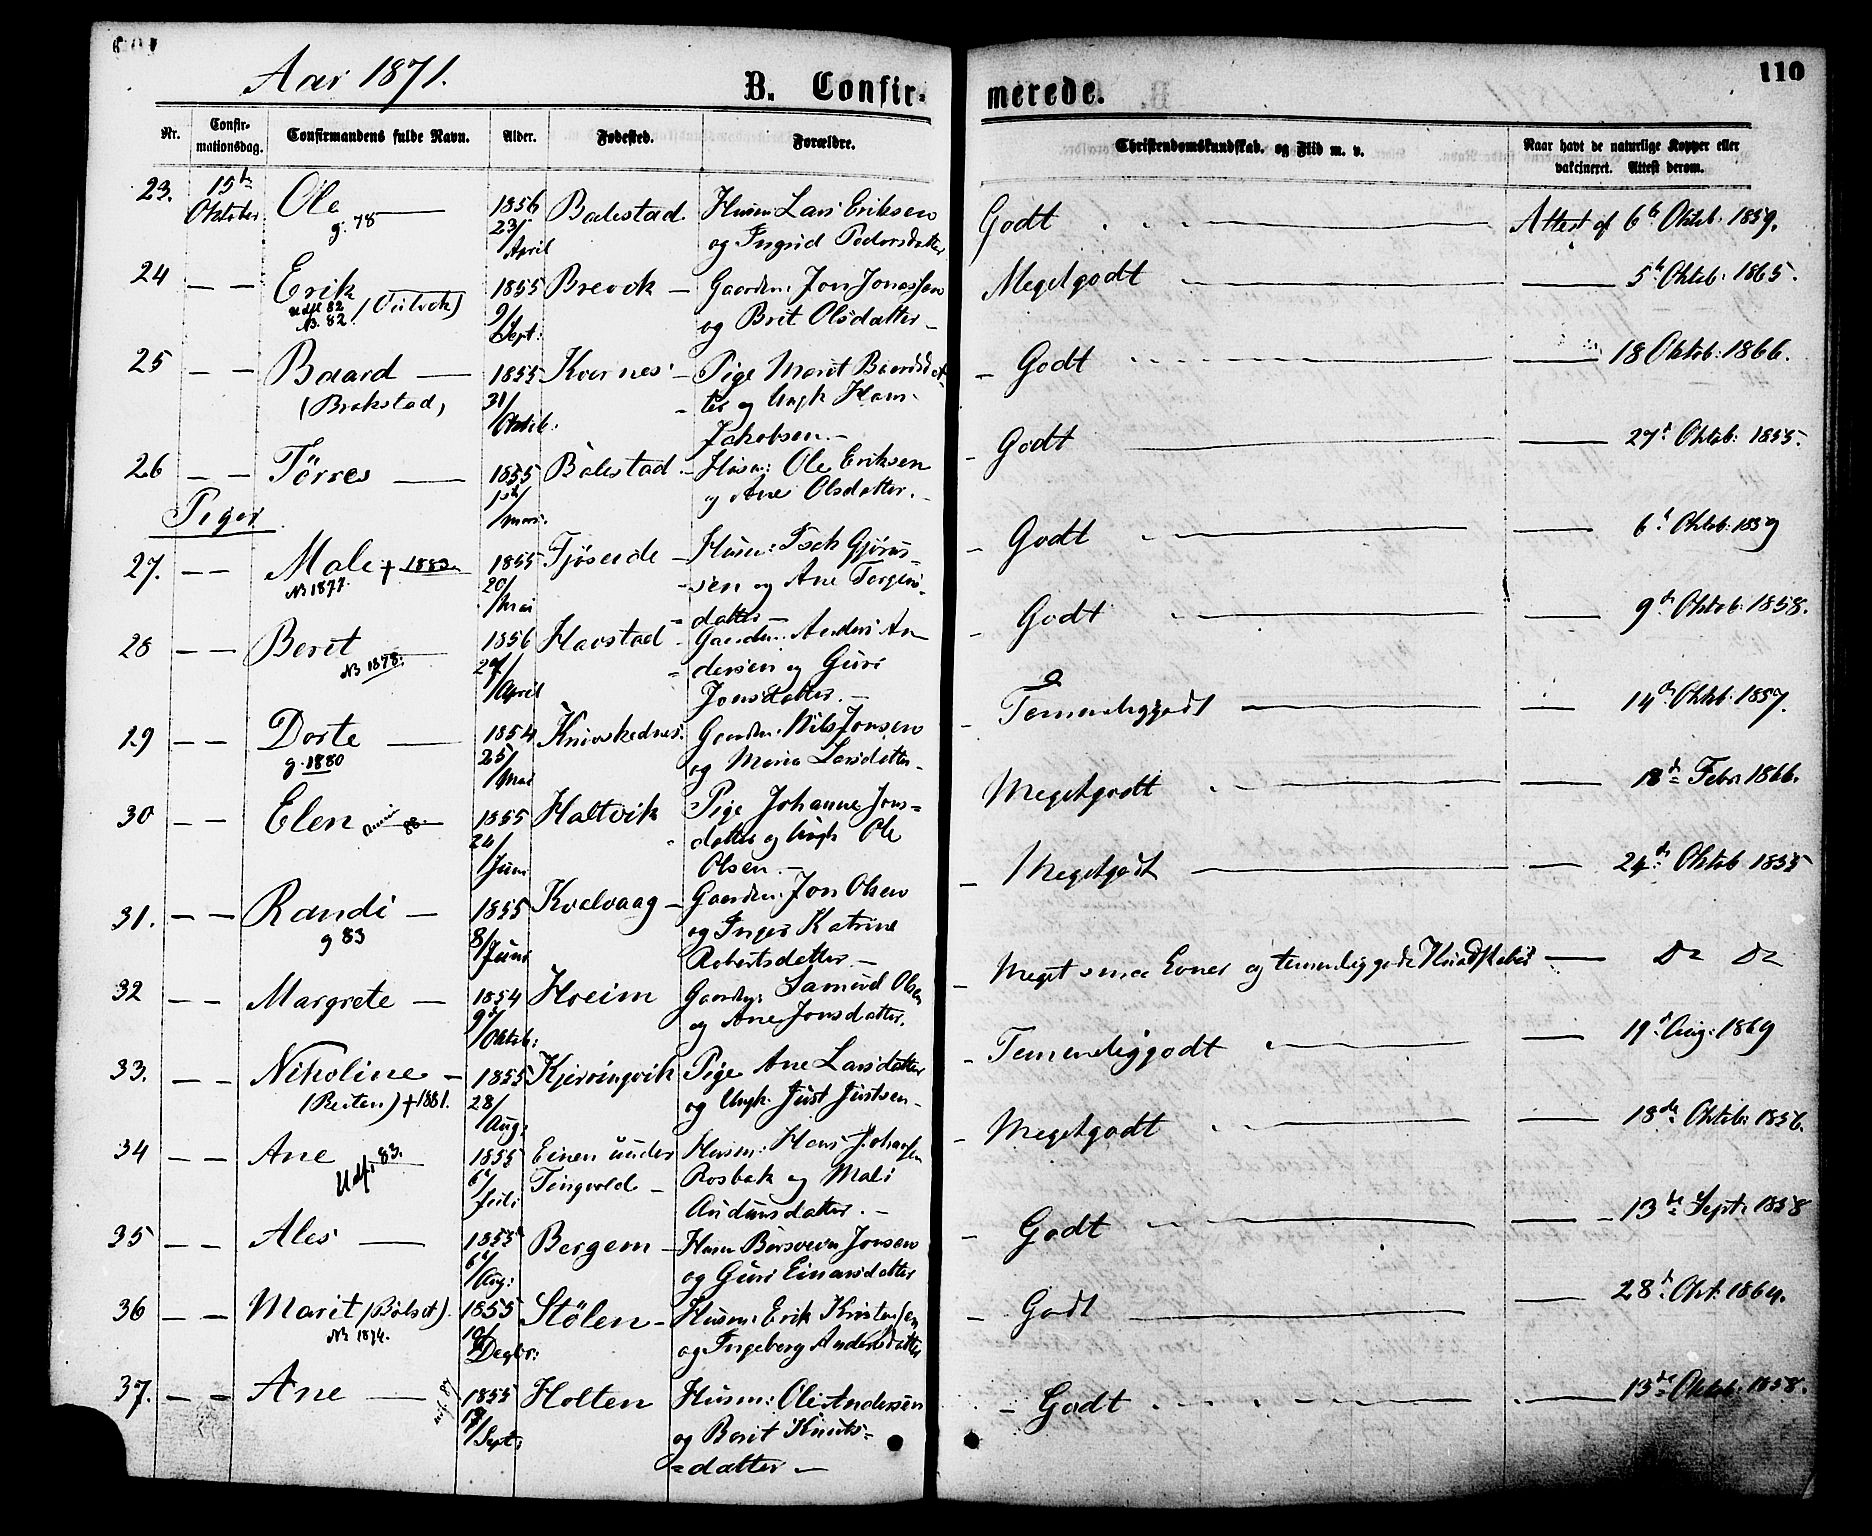 Aar 1871.
B. Confir-
merede.
110
Nr.
Confir-
mationsdag.
Confirmandens fulde Navn.
Alder.
Fødested.
Forældre.
Christendomskundskab. og Flid m. v.
Naar havt de naturlige Kopper eller
vakcineret. Attest derom.
23. 15de Oktober Ole — 1856 Balestad Husm: Lars Eriksen Godt — Attest af 6te Oktob: 1859.
g. 78 23/April og Ingrid Pedersdatter
24 — — Erik — 1855 Brevek — Gaardm: Jon Jonassen Megetgodt — 5te Oktob: 1865.
Udfl 82 N. 82 9/Sept: og Brit Olsdatter —
25 — — Baard — 1855 Kvernes — Pige Marit Baardsdat- Godt — 18 Oktob: 1866.
(Brekstad) 31/Oktob: ter og Ungk Hans
Jakobsen. —
26 — — Tørres — 1855 Bolestad — Husm: Ole Eriksen Godt — 27d Oktob: 1855.
og Ane Olsdatter. —
Piger
27. — — Male + 1883 1855 Fjøseide — Husm: Isak Gjørus- Godt — 6t Oktob: 1859
N 1877. 20/Mai sen og Ane Torgers-
datter —
28 — — Beret — 1856 Havstad — Gaardm: Anders An- Godt — 9de Oktob: 1858.
N 1878. 27/April dersen og Guri
Jonsdatter. —
29 — — Dorte — 1854 Knivskednes: Gaardm: Nils Jonsen Temmeliggodt — 14de Oktob: 1857.
g. 1880 25/Mai og Maria Larsdatter —
30 — — Elen 88. 1855 Haltvik Pige Johanne Jons= Megetgodt — 18de Febr: 1866.
24/Juni datter og Ungk Ole
Olsen. —
31. — — Randi — 1855 Kvalvaag — Gaardm: Jon Olsen Megetgodt — 24de Oktob 1855
g 83 8/Juni og Inger Katrine
Robertsdatter —
32 — — Margrete — 1854 Hveim Gaardm: Samuel Olsen Meget smaa Evner og temmeliggode Kundskaber — Do Do
9d/Oktob: og Ane Jonsdatter.
33. — — Nikoline — 1855 Kjerringvik Pige Ane Larsdatter Temmeliggodt — 19d Aug: 1869
(Reiten) + 1881. 28/Aug: og Ungk. Just Justsen —
34 — — Ane — 1855 Einen under Husm: Hans Johansen Megetgodt — 18de Oktob: 1856.
Udf. 83. 6t/Juli Tingvold — Rosbak og Mali
Audunsdatter. —
35 — — Ales — 1855 Bergem — Husm Børsvein Jonsen Godt — 13de Sept: 1858
6t/Aug: og Guri Einarsdatter
36 — — Marit (Bølset). 1855 Stølen — Husm: Erik Kristensen Godt — 28d Okt: 1864.
N 1874. 10/Decbr: og Ingeborg Andersdatter
37. — — Ane — 1855 Holten Husm: Ole Andersen Godt — 13de Oktob: 1858.
/Sept: og Berit Knuts=
=datter —